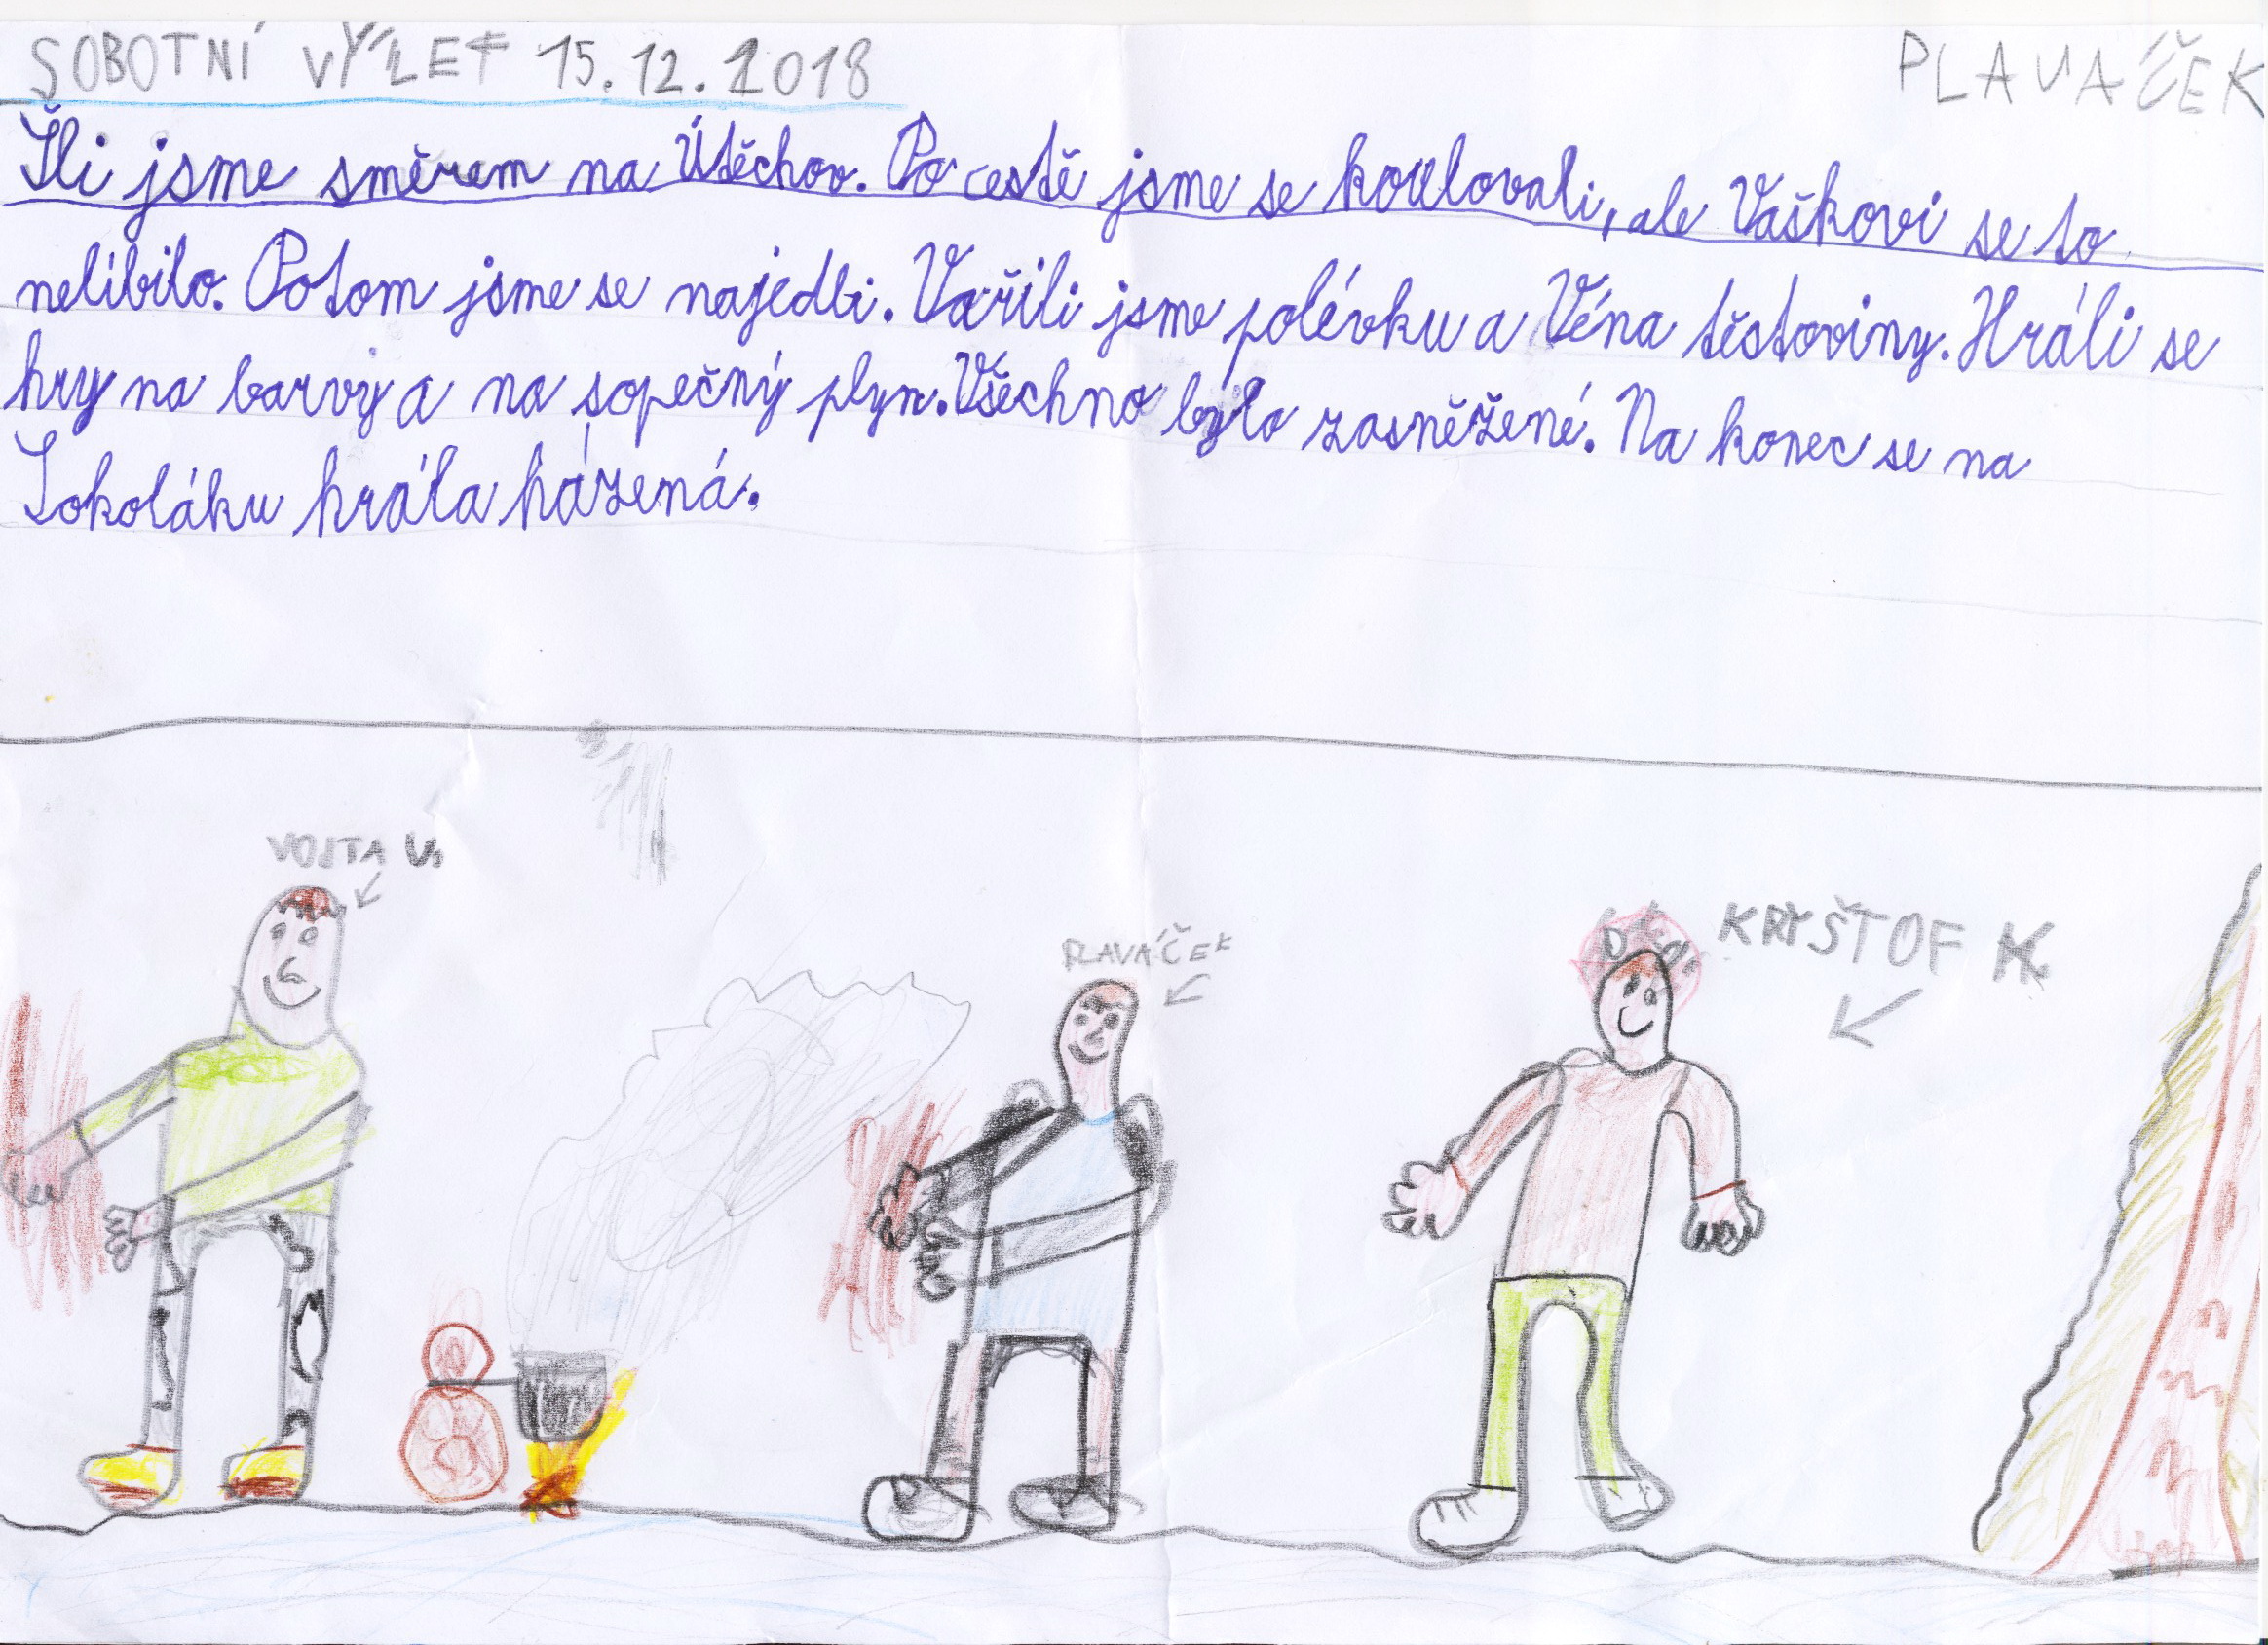 SOBOTNÍ VÝLET 15.12.2018
PLAVÁČEK
Šli jsme směrem na Útěchov. Po cestě jsme se koulovali, ale Vaškovi se to
nelíbilo. Potom jsme se najedli. Vařili jsme polévku a Véna těstoviny. Hráli se
hry na barvy a na sopečný plyn. Všechno bylo zasněžené. Na konec se na
Sokoláku hrála házená.
VOJTA V.
PLAVÁČEK
KRYŠTOF K.